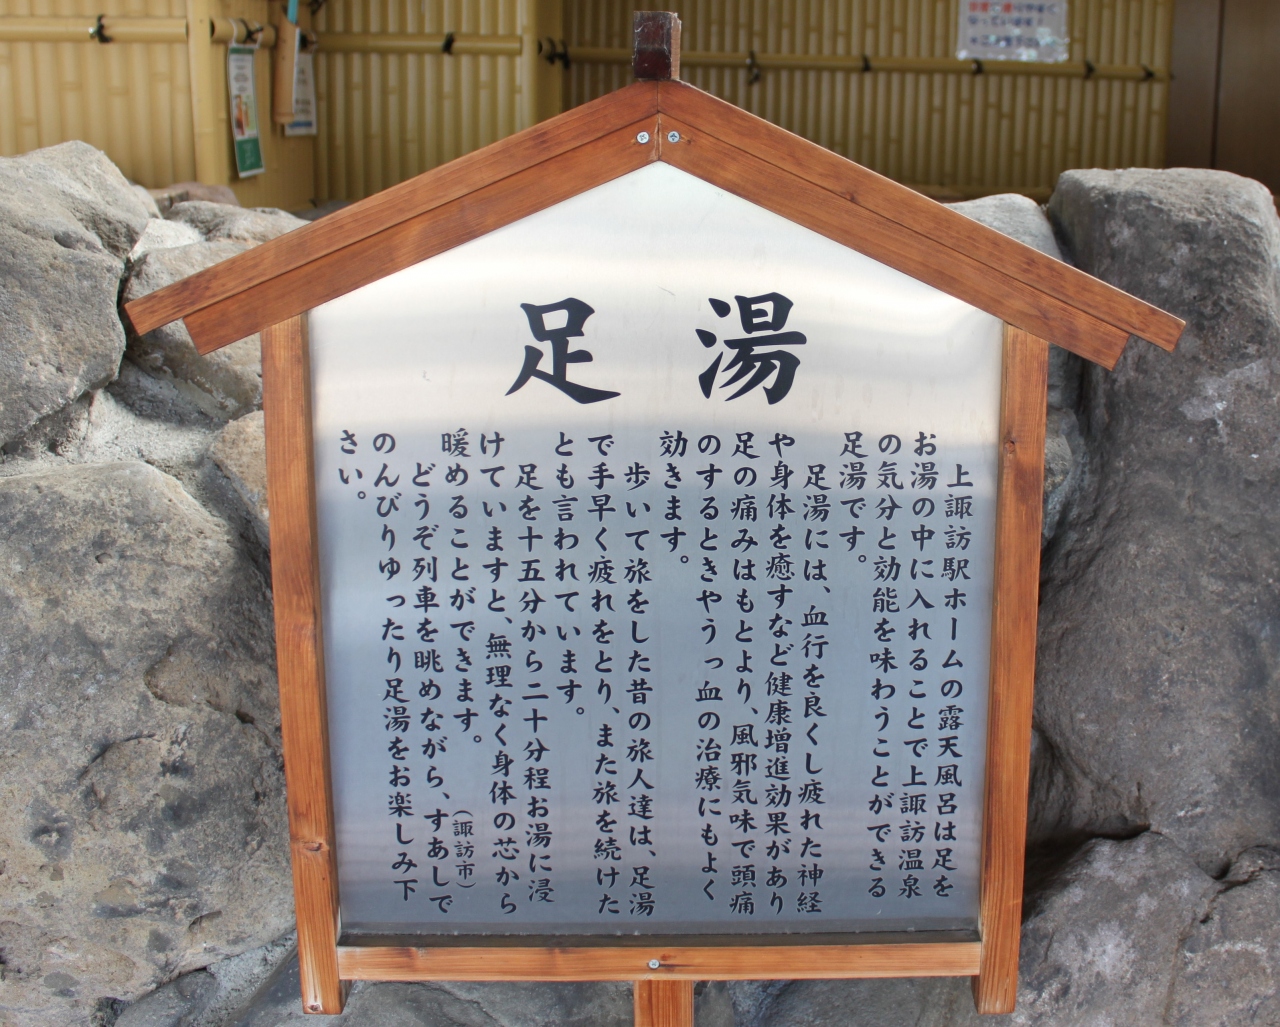 足湯
上諏訪駅ホームの露天風呂は足を
お湯の中に入れることで上諏訪温泉
の気分と効能を味わうことができる
足湯です。
足湯には、血行を良くし疲れた神経
や身体を癒すなど健康増進効果があり
足の痛みはもとより、風邪気味で頭痛
のするときやうっ血の治療にもよく
効きます。
歩いて旅をした昔の旅人達は、足湯
で手早く疲れをとり、また旅を続けた
とも言われています。
足を十五分から二十分程お湯に浸
けていますと、無理なく身体の芯から
暖めることができます。
どうぞ列車を眺めながら、すあしで
のんびりゆったり足湯をお楽しみ下
さい。
（諏訪市）